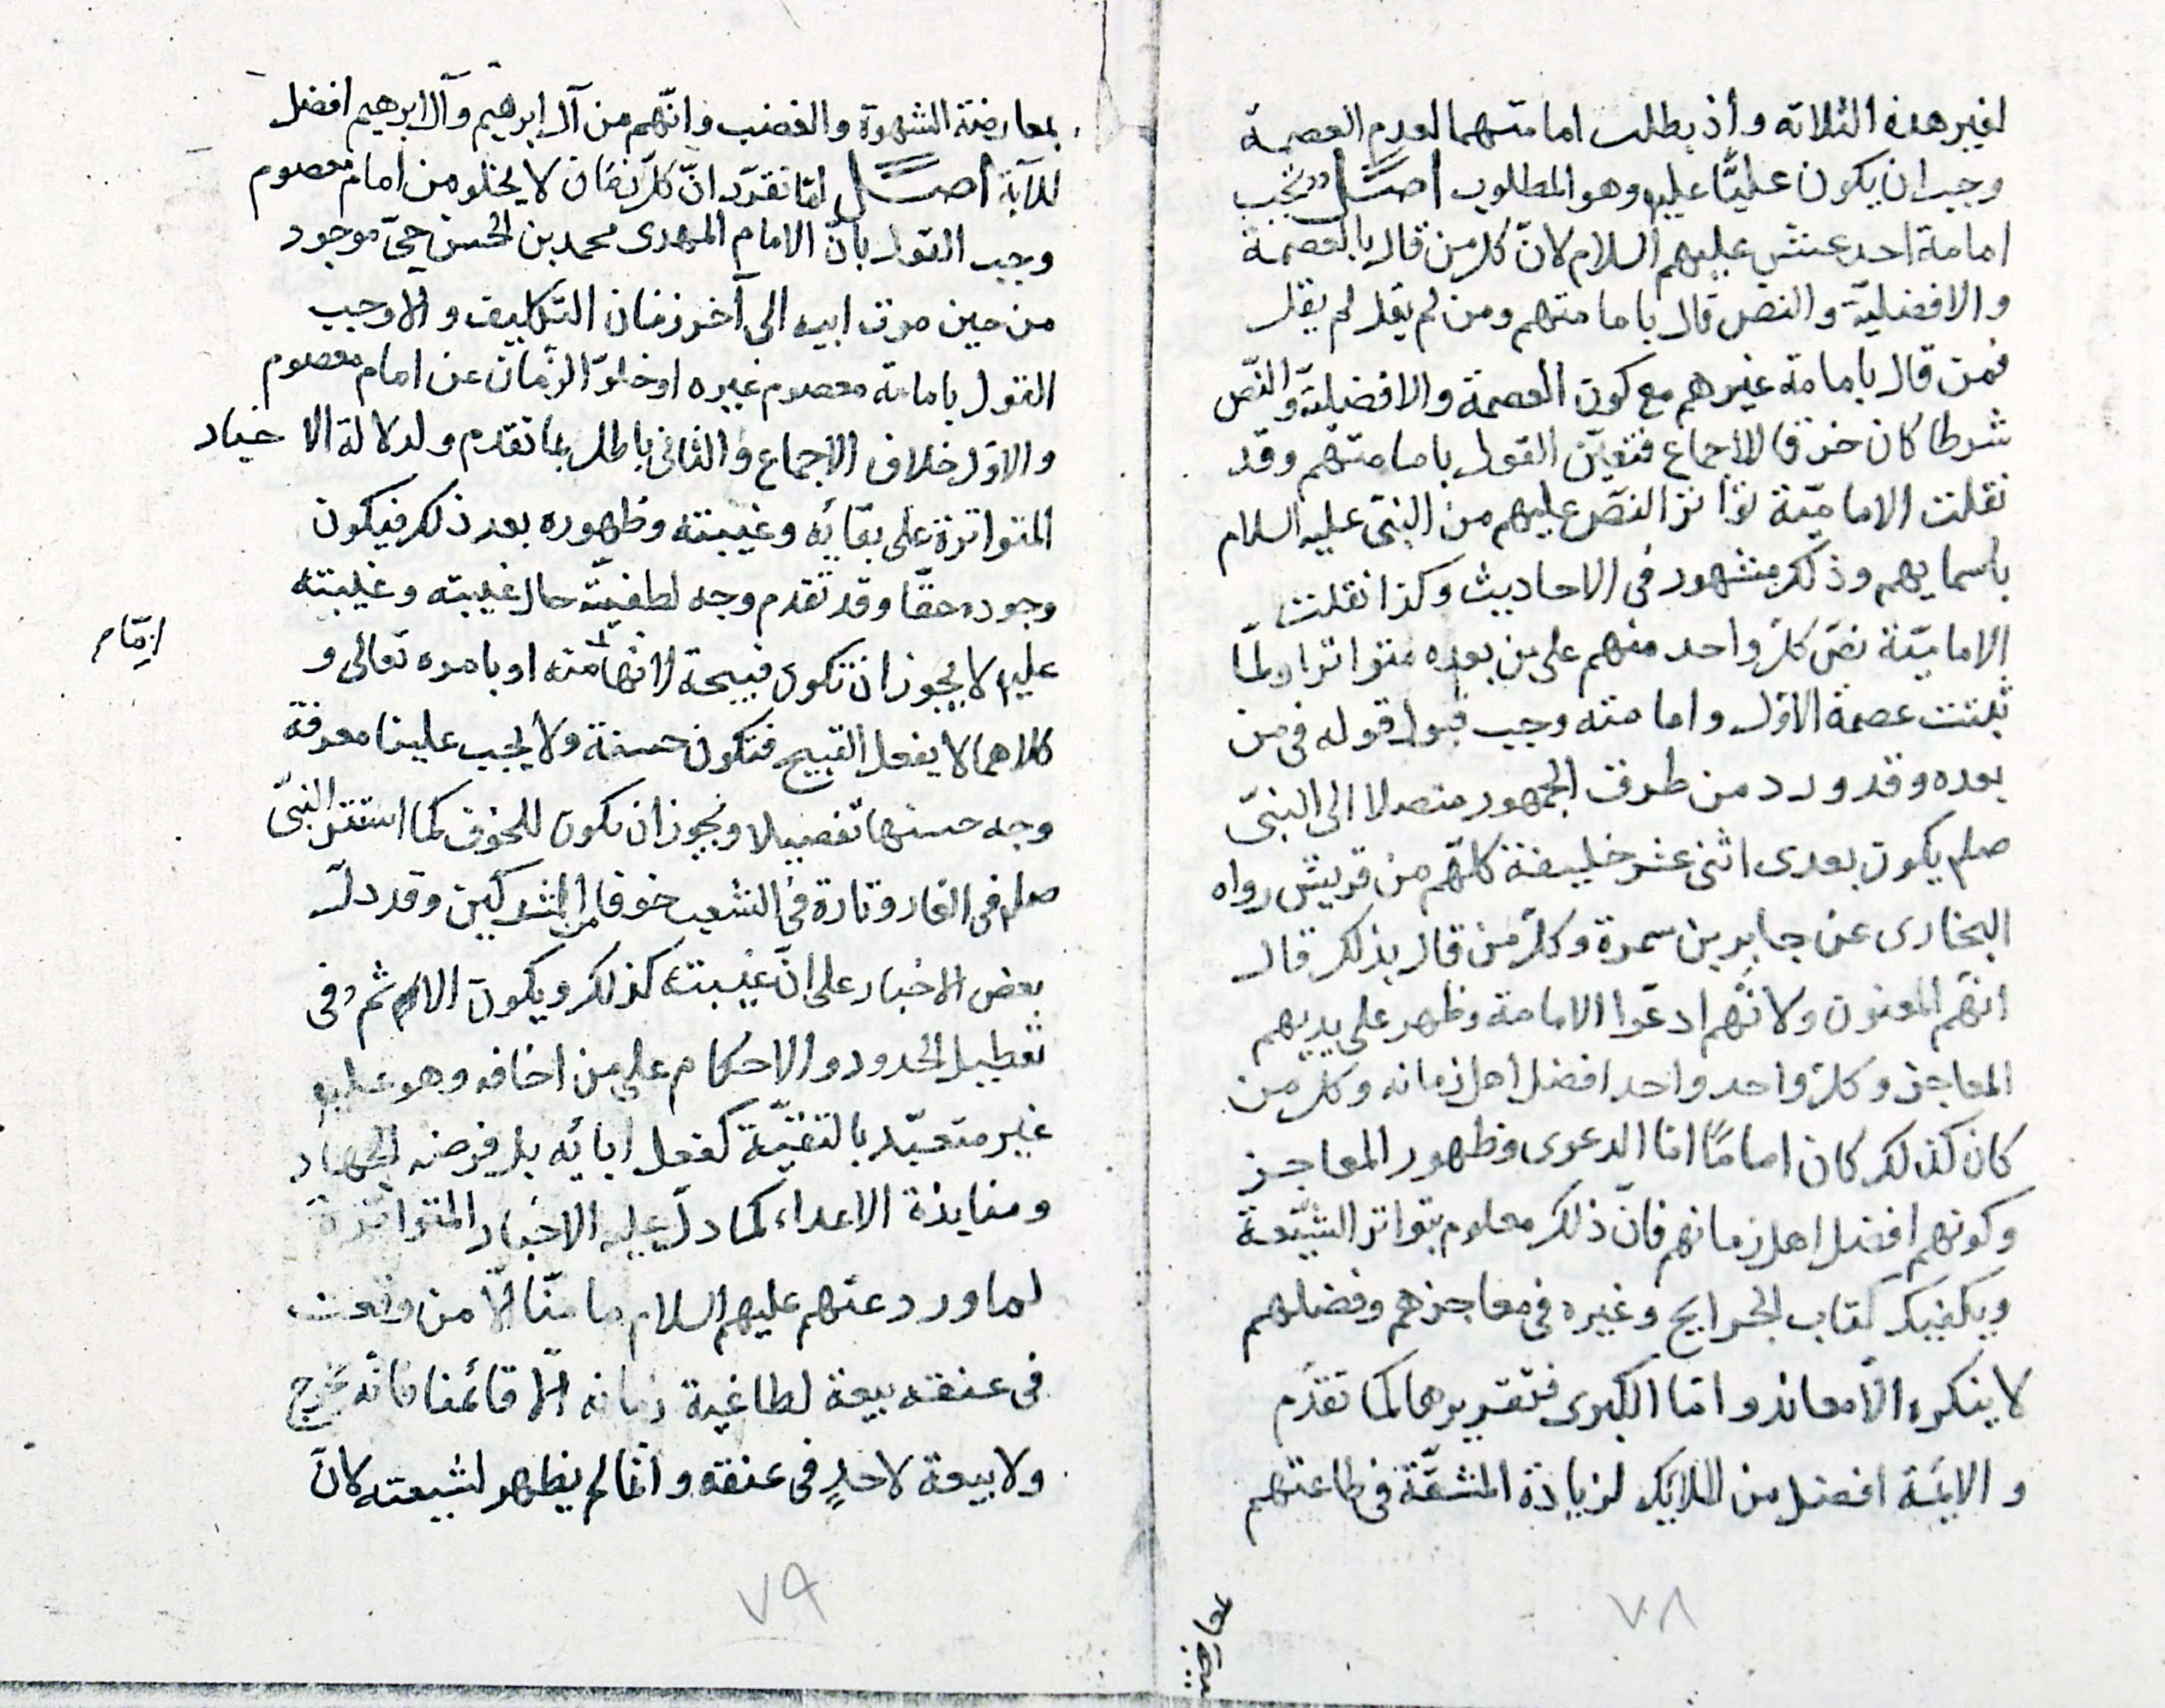 لغير هذه الثلاثة واذ بطلت امامتهما لعدم العصمة
وجب ان يكون عليًّا عليه وهو المطلوب اصــل تجب
امامة احد عشر عليهم السلام لانّ كل من قال بالعصمة
والافضليّة والنص قال بامامتهم ومن لم يقل لم يقل
فمن قال بامامة غيرهم مع كون العصمة والافضليّة والنّص
شرطا كان خرقا للاجماع فتعيّن القول بامامتهم وقد
نقلت الاماميّة تواتر النصّ عليهم من النبىّ عليه السلام
باسمايهم وذلك مشهور فى الاحاديث وكذا نقلت
الاماميّة نصّ كلّ واحد منهم على من بعده متواترا ولمّا
ثبتت عصمة الاوّل وامامته وجب قبول قوله فى من
بعده وقد ورد من طرف الجمهور متصلا الى النبىّ
صلم يكون بعدى اثنى عشر خليفة كلّهم من قريش رواه
البخارى عن جابر بن سمرة وكلّ من قال بذلك قال
انّهم المعنون ولانّهم ادعّوا الامامة وظهر على يديهم
المعاجز وكلّ واحد واحد افضل اهل زمانه وكل من
كان كذلك كان امامًا امّا الدعوى وظهور المعاجز
وكونهم افضل اهل زمانهم فانّ ذلك معلوم بتواتر الشيّعة
ويكفيك كتاب الخرايج وغيره فى معاجزهم وفضلهم
لا ينكره الّا معاند وامّا الكبرى فتقريرها كما تقدّم
والايمّة افضل من الملايك لزيادة المشقّة فى طاعتهم
٧٨
بمعارضة الشهوة والغضب وانّهم من آل ابرهيم وآل ابرهيم افضل
للآية اصــل لمّا تقرّر انّ كلّ زمان لا يخلو من امام معصوم
وجب القول بانّ الامام المهدى محمد بن الحسن حىّ موجود
من حين موت ابيه الى آخر زمان التكليف والا وجب
القول بامامة معصوم غيره او خلوّ الزمان عن امام معصوم
والاوّل خلاف الاجماع والثانى باطل بما تقدم ولدلالة الاخبار
المتواترة على بقائه وغيبته وظهوره بعد ذلك فيكون
وجوده حقّا وقد تقدم وجه لطفيّته حال غيبته وغيبته
عليه لا يجوز ان تكون قبيحة لانها منه او بامره تعالى و
امّا
كلاهما لا يفعل القبيح فتكون حسنة ولا يجب علينا معرفة
وجه حسنها تفصيلا ويجوز ان تكون للخوف كما استتر النبىّ
صلم فى الغار وتارة فى الشعب خوفا من المشركين وقد دلّ
بعض الاخبار على انّ غيبته كذلك ويكون الاثم فى
تعطيل الحدود والاحكام على من اخافه وهو عليه
غير متعبّد بالتقيّة كفعل ابائه بل فرضه الجهاد
ومنابذة الاعداء كما دلّ عليه الاخبار المتواترة
لما ورد عنهم عليهم السلام ما منّا الّا من وقعت
فى عنقه بيعة لطاغية زمانه الّا قائمنا فانّه يخرج
ولا بيعة لاحدٍ فى عنقه وانّما لم يظهر لشيعته لانّ
٧٩